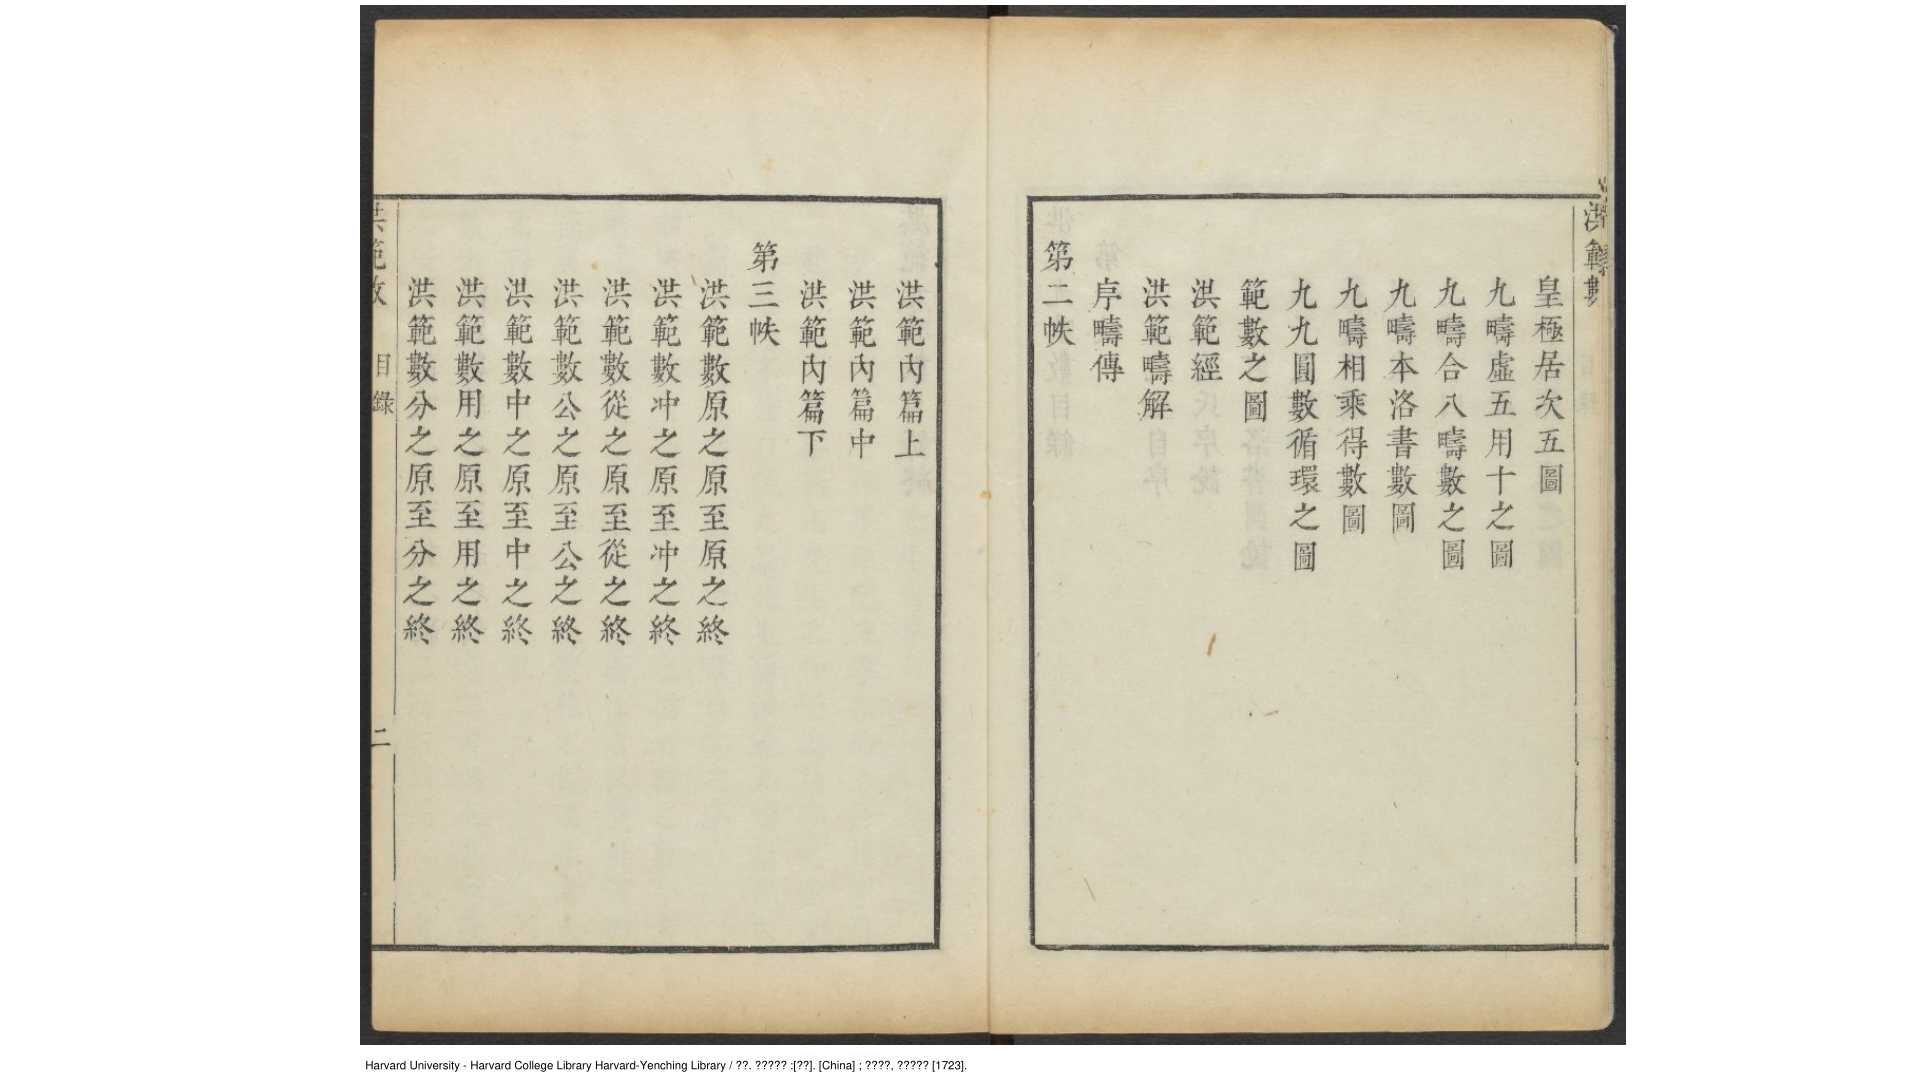 皇極居次五圖
九疇虛五用十之圖
九疇合八疇數之圖
九疇本洛書數圖
九疇相乘得數圖
九九圓數循環之圖
範數之圖
洪範經
洪範疇解
序疇傳
第二帙
洪範內篇上
洪範內篇中
洪範內篇下
第三帙
洪範數原之原至原之終
洪範數冲之原至冲之終
洪範數從之原至從之終
洪範數公之原至公之終
洪範數中之原至中之終
洪範數用之原至用之終
洪範數分之原至分之終
洪範数 目錄 二
Harvard University - Harvard College Library Harvard-Yenching Library / ??. ????? :[??]. [China] ; ????, ????? [1723].